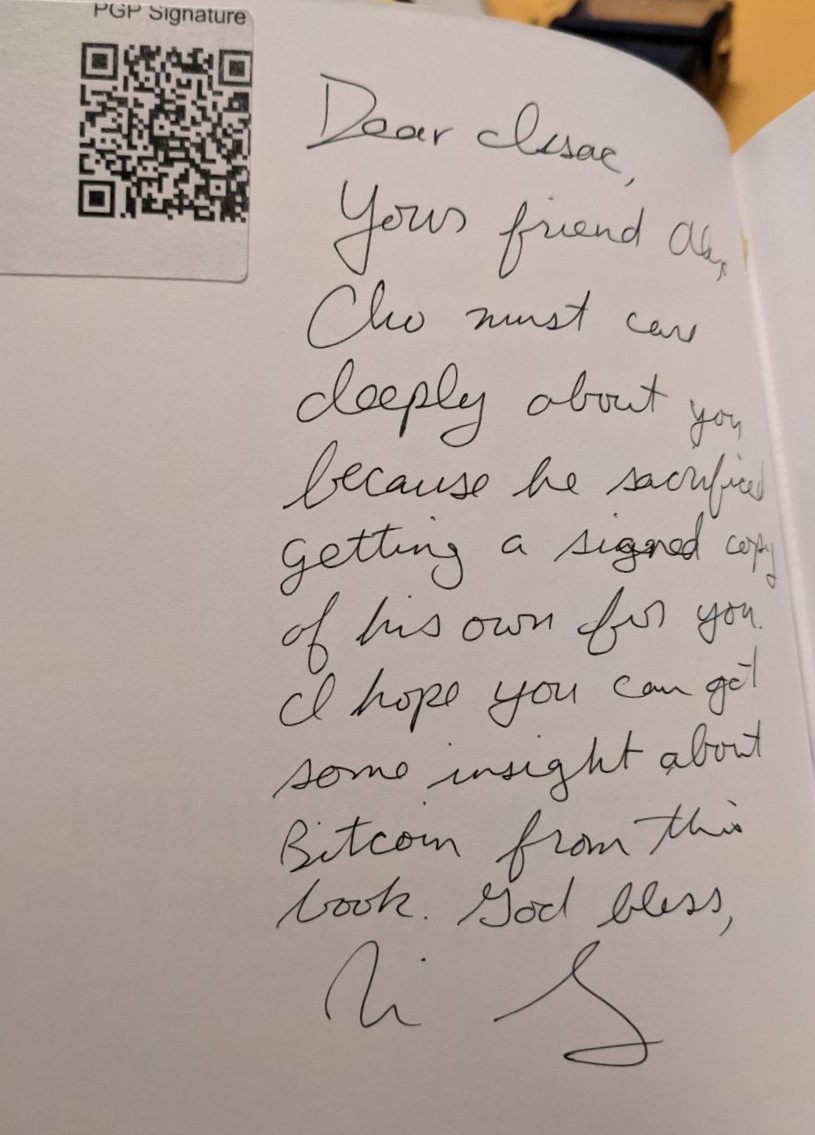 PGP Signature
Dear Issac,
Your friend
Cho must care
deeply about you
because he sacrificed
getting a signed copy
of his own for you.
I hope you can get
some insight about
Bitcoin from this
book. God bless,